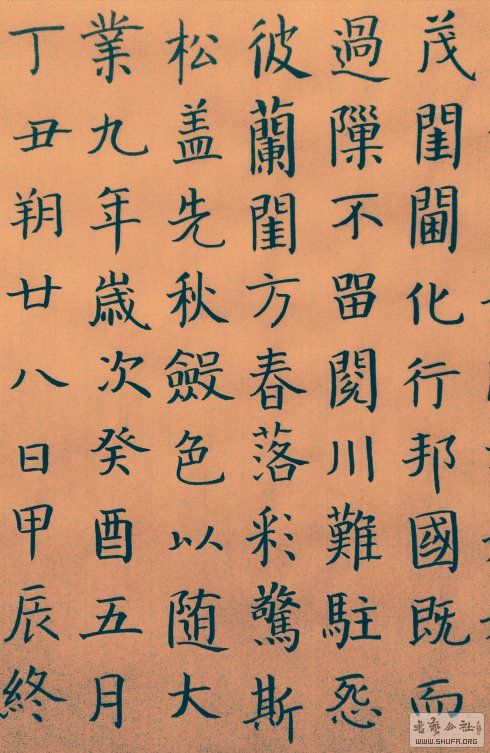 茂閨閫化行邦國既而
過隟不留閱川難駐怨
彼蘭閨方春落彩驚斯
松盖先秋斂色以随大
業九年歲次癸酉五月
丁丑朔廿八日甲辰終
書藝公社
WWW.SHUFA.ORG